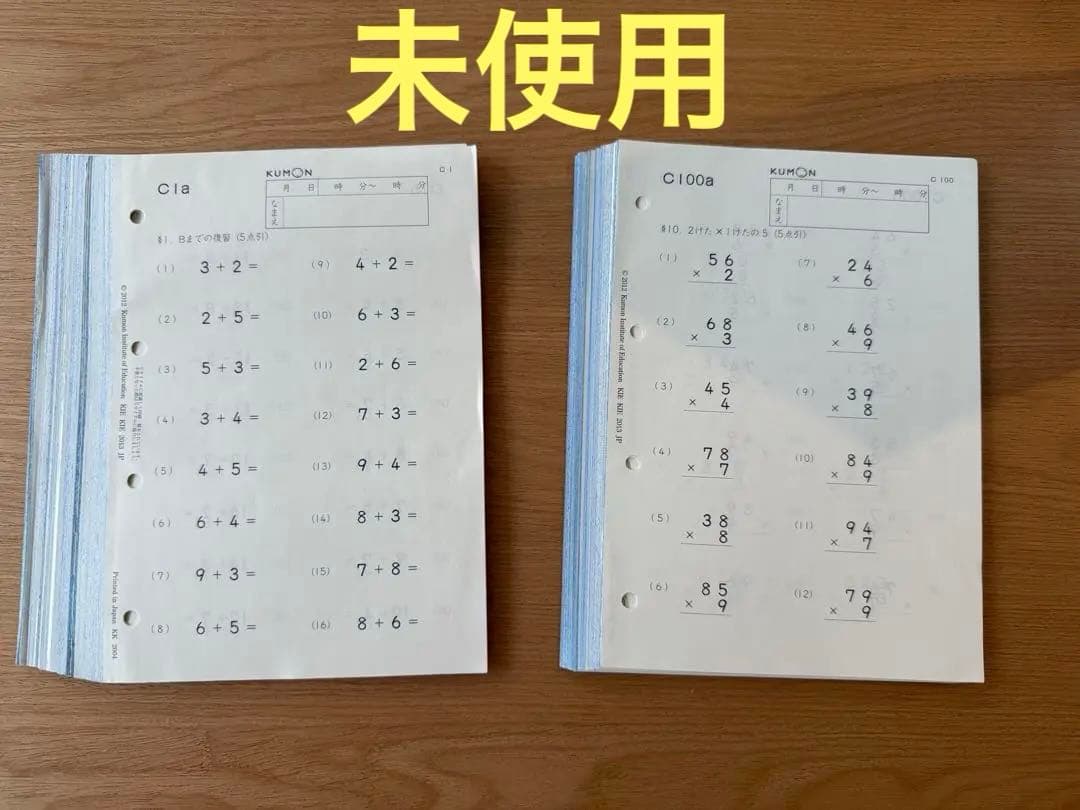 未使用
KUMON
C1
C1a
月 日 時 分～ 時 分
なまえ
§1. Bまでの復習 (5点引)
(1) 3 + 2 =
(2) 2 + 5 =
(3) 5 + 3 =
(4) 3 + 4 =
(5) 4 + 5 =
(6) 6 + 4 =
(7) 9 + 3 =
(8) 6 + 5 =
(9) 4 + 2 =
(10) 6 + 3 =
(11) 2 + 6 =
(12) 7 + 3 =
(13) 9 + 4 =
(14) 8 + 3 =
(15) 7 + 8 =
(16) 8 + 6 =
© 2012 Kumon Institute of Education KIE KIE 2013 JP
Printed in Japan KK 2004
KUMON
C100
C100a
月 日 時 分～ 時 分
なまえ
§10. 2けた×1けたの5 (5点引)
(1) 56
× 2
(2) 68
× 3
(3) 45
× 4
(4) 78
× 7
(5) 38
× 8
(6) 85
× 9
(7) 24
× 6
(8) 46
× 9
(9) 39
× 8
(10) 84
× 9
(11) 94
× 7
(12) 79
× 9
© 2012 Kumon Institute of Education KIE KIE 2013 JP